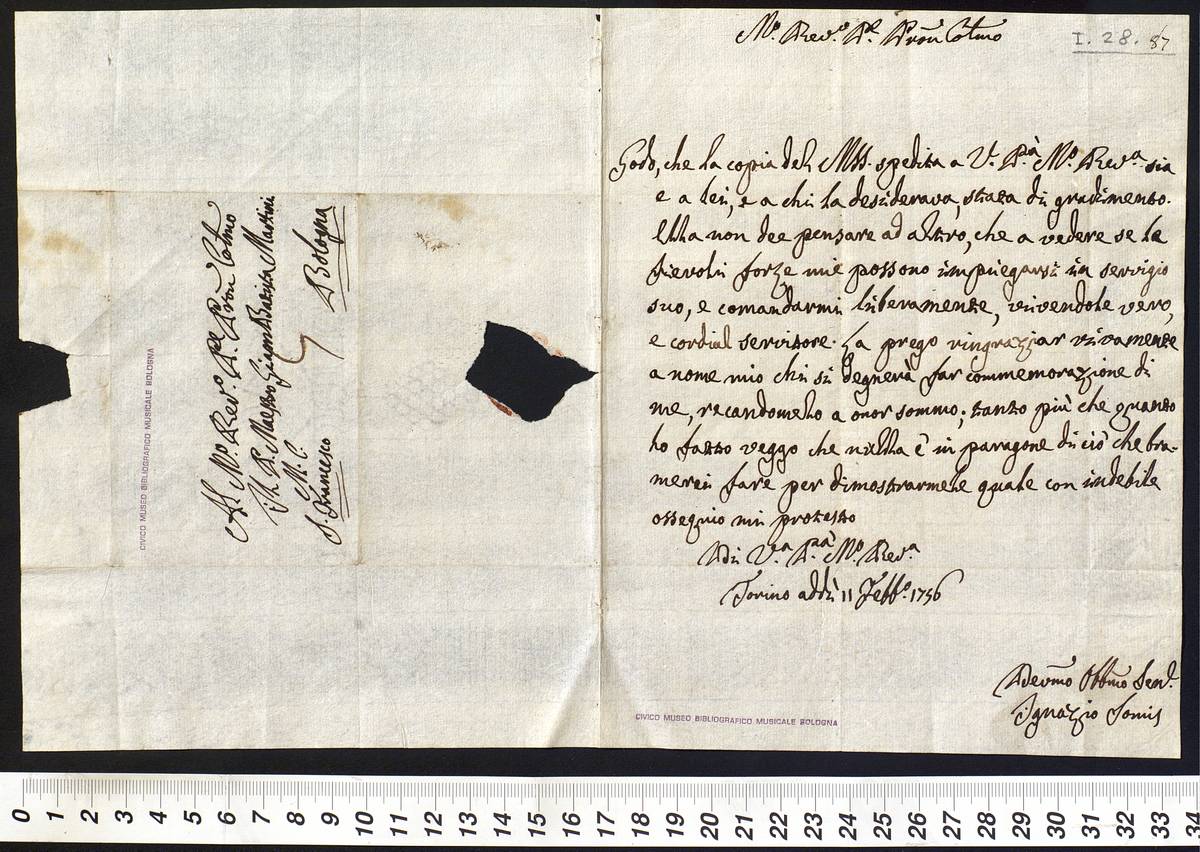 Al M.º Rev.º P.re P.ron Colmo
Il P. Maestro Giamb Batista Martini
M. C.
S. Franesco
Bologna
CIVICO MUSEO BIBLIOGRAFICO MUSICALE BOLOGNA
M.º Rev.º P.e P.ron Colmo
I. 28. 87
Godo, che la copia del Mss. spedita a V. P.tà M.º Rev.a sia
e a lei, e a chi la desiderava, stata di gradimento.
Ella non dee pensare ad altro, che a vedere se le
fievoli forze mie possono impiegarsi in servigio
suo, e comandarmi liberamente, vivendole vero,
e cordial servitore. La prego ringraziar vivamente
a nome mio chi si degnerà far commemorazione di
me, recandomelo a onor sommo; tanto più che quanto
ho fatto veggo che nulla è in paragone di ciò che bra-
merei fare per dimostrarmele quale con indebile
ossequio mi protesto
Di V.a P.tà M.º Rev.a
Torino addì 11 Febb.º 1756
Devmo Obbmo Serv.
Ignazio Somis
CIVICO MUSEO BIBLIOGRAFICO MUSICALE BOLOGNA
0 1 2 3 4 5 6 7 8 9 10 11 12 13 14 15 16 17 18 19 20 21 22 23 24 25 26 27 28 29 30 31 32 33 34